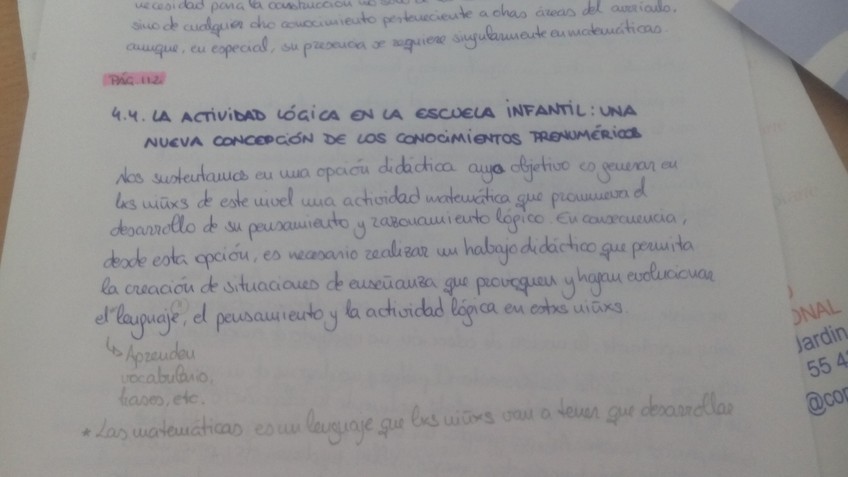 necesidad para la construcción no solo de
sino de cualquier otro conocimiento perteneciente a otras áreas del currículo,
aunque, en especial, su presencia se requiere singularmente en matemáticas.
PÁG. 112
4.4. LA ACTIVIDAD LÓGICA EN LA ESCUELA INFANTIL: UNA
NUEVA CONCEPCIÓN DE LOS CONOCIMIENTOS PRENUMÉRICOS
Nos sustentamos en una opción didáctica cuyo objetivo es generar en
lxs niñxs de este nivel una actividad matemática que promueva el
desarrollo de su pensamiento y razonamiento lógico. En consecuencia,
desde esta opción, es necesario realizar un trabajo didáctico que permita
la creación de situaciones de enseñanza que provoquen y hagan evolucionar
el "lenguaje", el pensamiento y la actividad lógica en estxs niñxs.
↳ Aprenden
vocabulario,
frases, etc.
* Las matemáticas es un lenguaje que lxs niñxs van a tener que desarrollar
ONAL
Jardin
55 4
@cor